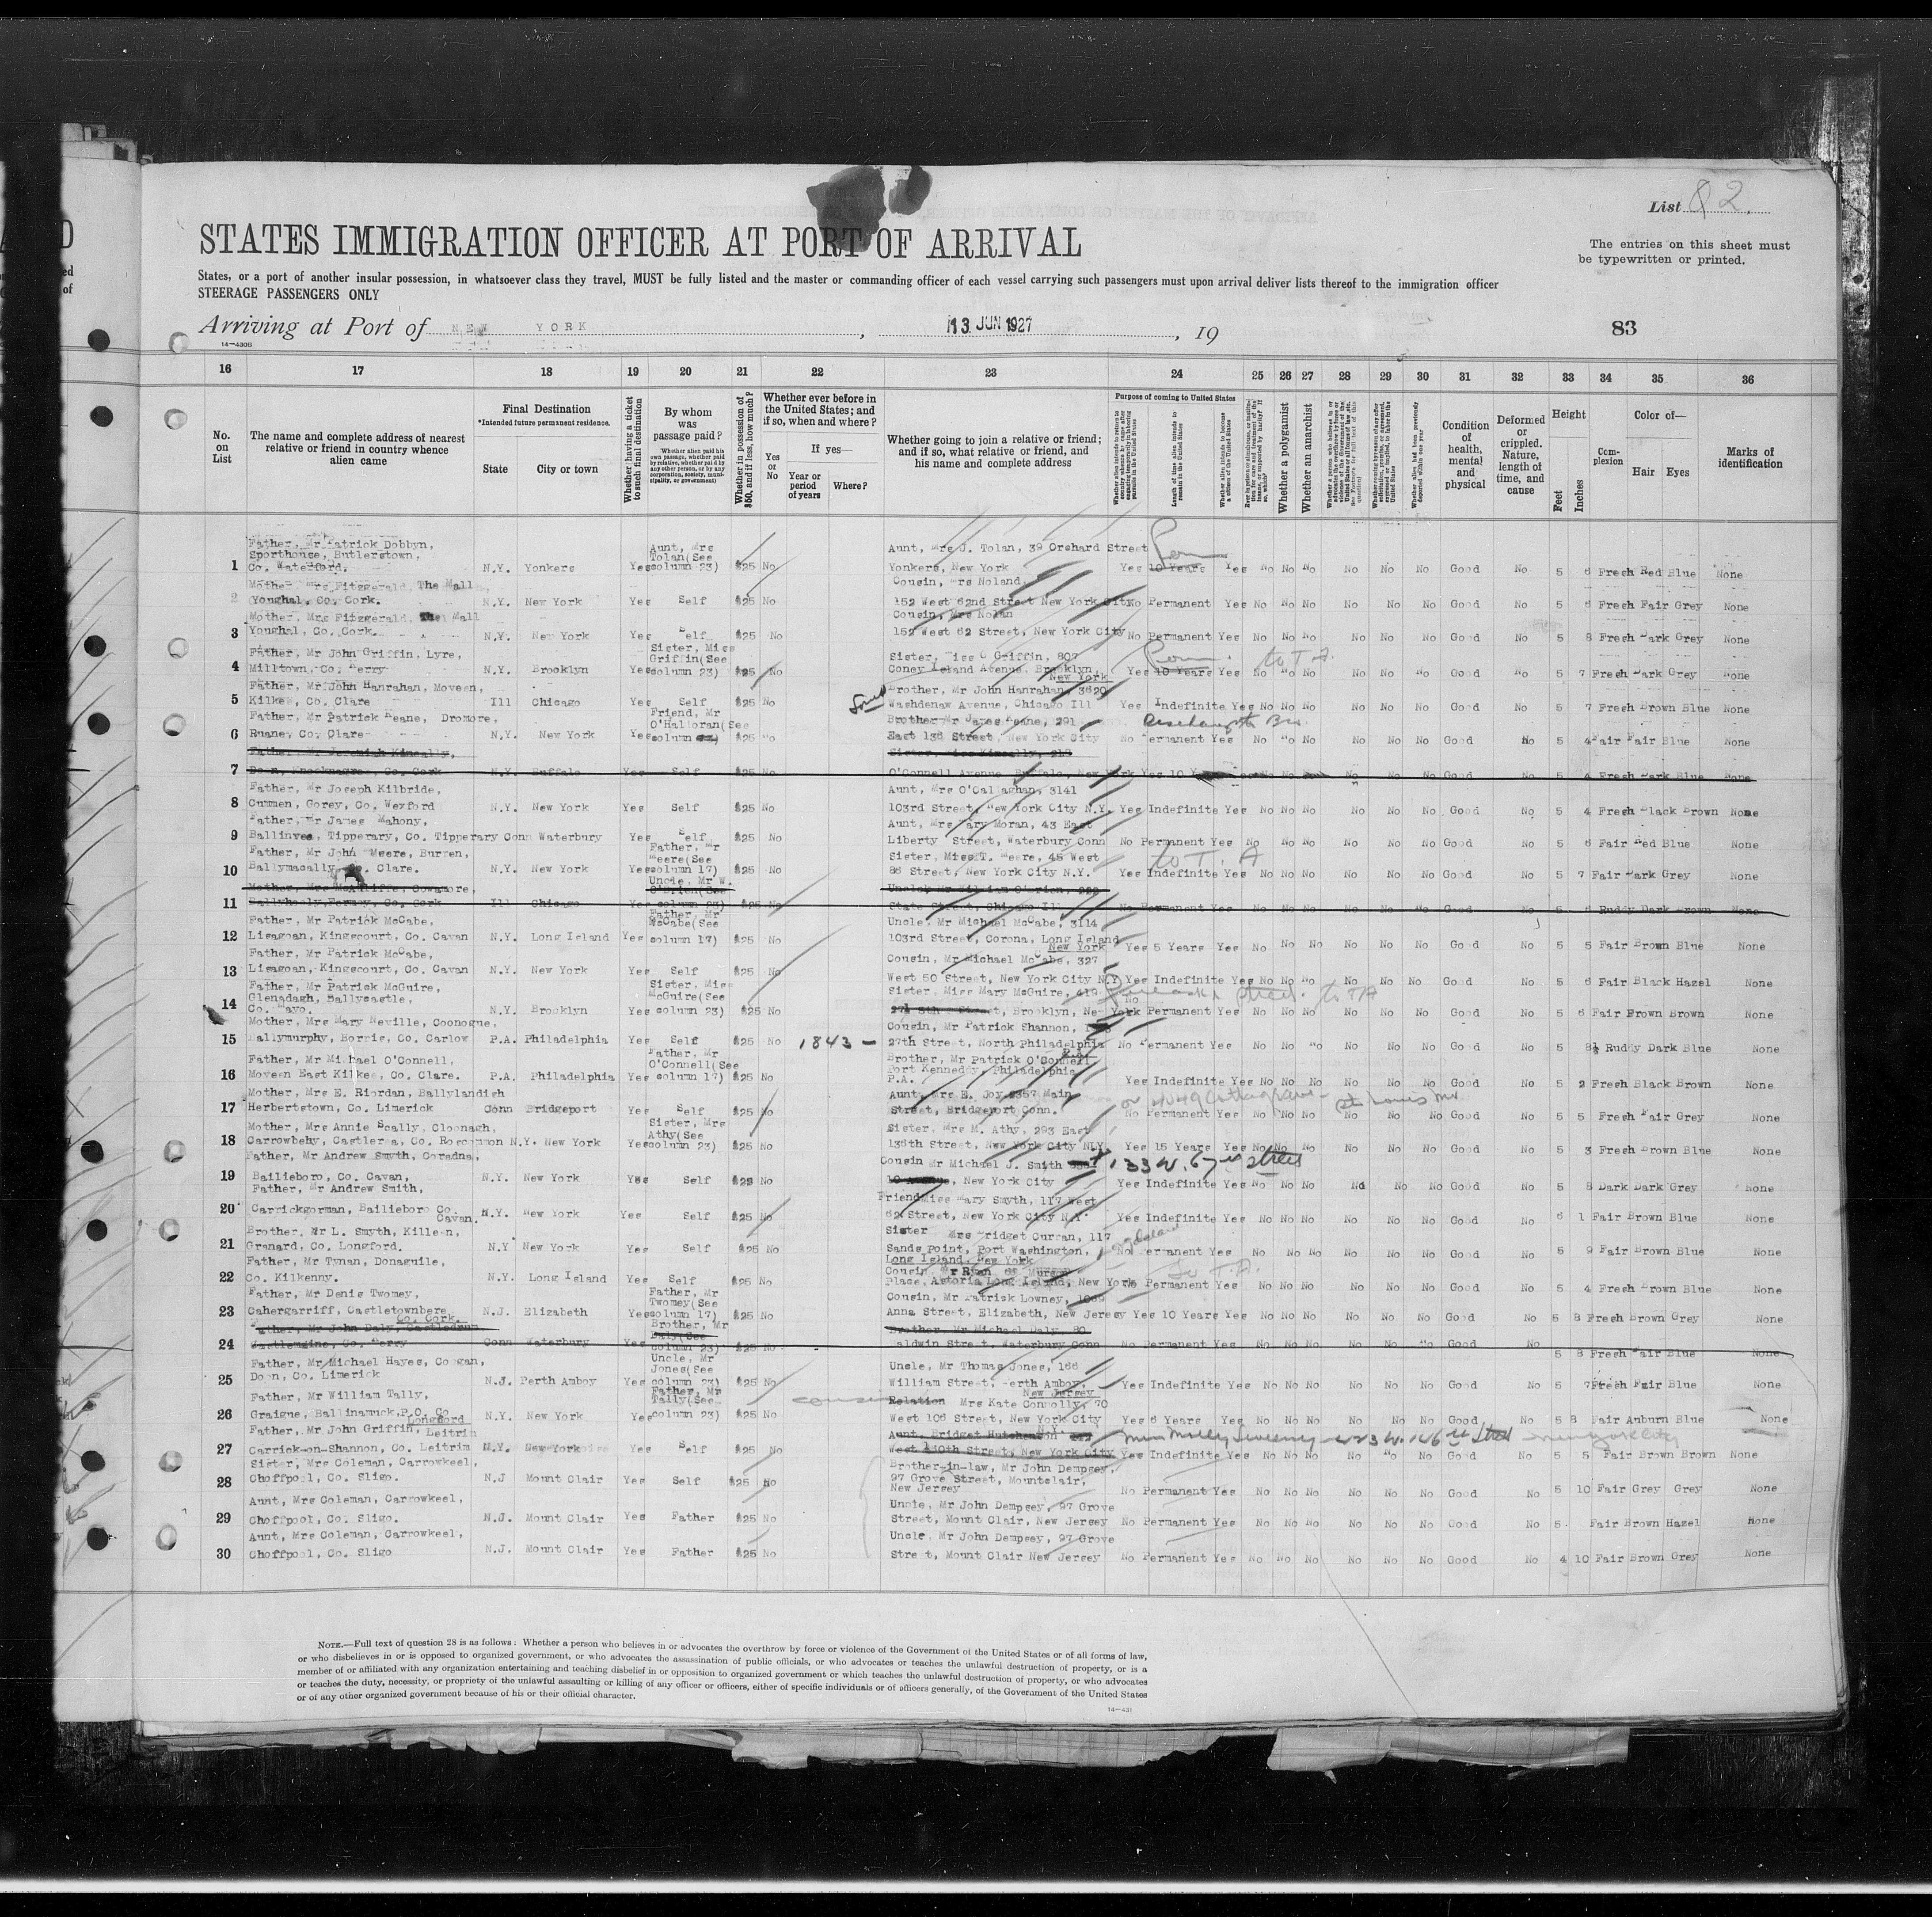 List 82.
STATES IMMIGRATION OFFICER AT PORT OF ARRIVAL
The entries on this sheet must
be typewritten or printed.
States, or a port of another insular possession, in whatsoever class they travel, MUST be fully listed and the master or commanding officer of each vessel carrying such passengers must upon arrival deliver lists thereof to the immigration officer
STEERAGE PASSENGERS ONLY
Arriving at Port of NEW YORK, 13 JUN 1927, 19
83
14—430B
16 17 18 19 20 21 22 23 24 25 26 27 28 29 30 31 32 33 34 35 36
No. on List
The name and complete address of nearest relative or friend in country whence alien came
Final Destination
*Intended future permanent residence.
State City or town
Whether having a ticket to such final destination
By whom was passage paid?
Whether in possession of $50, and if less, how much?
Whether ever before in the United States; and if so, when and where?
Yes or No
If yes—
Year or period of years
Where?
Whether going to join a relative or friend; and if so, what relative or friend, and his name and complete address
Purpose of coming to United States
Length of time alien intends to remain in the United States
Whether a polygamist
Whether an anarchist
Condition of health, mental and physical
Deformed or crippled. Nature, length of time, and cause
Height
Feet Inches
Complexion
Color of—
Hair Eyes
Marks of identification
Father, Mr Patrick Dobbyn,
Sporthouse, Butlerstown,
1 Co. Waterford. N.Y. Yonkers Yes Aunt, Mrs Tolan(See column 23) $25 No Aunt, Mrs J. Tolan, 39 Orchard Street Yonkers, New York Yes 10 Years Yes No No No No No No Good No 5 6 Fresh Red Blue None
Mother Mrs Fitzgerald, The Mall
2 Youghal, Co. Cork. N.Y. New York Yes Self $25 No Cousin, Mrs Noland, 152 West 62nd Street New York City No Permanent Yes No No No No No No Good No 5 6 Fresh Fair Grey None
Mother, Mrs Fitzgerald, The Mall
3 Youghal, Co. Cork. N.Y. New York Yes Self $25 No Cousin, Mrs Nolan 152 West 62 Street, New York City No Permanent Yes No No No No No No Good No 5 8 Fresh Dark Grey None
Father, Mr John Griffin, Lyre,
4 Milltown, Co. Kerry N.Y. Brooklyn Yes Sister, Miss Griffin(See column 23) $25 No Sister, Miss C Griffin, 807 Coney Island Avenue, Brooklyn, New York Yes 10 Years Yes to T.A. No No No No No No Good No 5 7 Fresh Dark Grey None
Father, Mr John Hanrahan, Moveen,
5 Kilkee, Co. Clare Ill Chicago Yes Self $25 No Brother, Mr John Hanrahan, 3620 Washdenaw Avenue, Chicago Ill Yes Indefinite Yes No No No No No No Good No 5 7 Fresh Brown Blue None
Father, Mr Patrick Keane, Dromore,
6 Ruane, Co. Clare N.Y. New York Yes Friend, Mr O'Halloran(See column $25 No Brother Mr James Keane, 291 East 136 Street, New York City No Permanent Yes No No No No No No Good No 5 4 Fair Fair Blue None
Father, Mr Jeremiah Kineally,
7 Co. Cork N.Y. Buffalo Yes Self $25 No O'Connell Avenue Buffalo, New York Yes No Good No 5 4 Fresh Dark Blue None
Father, Mr Joseph Kilbride,
8 Cummen, Gorey, Co. Wexford N.Y. New York Yes Self $25 No Aunt, Mrs O'Callaghan, 3141 103rd Street, New York City N.Y. Yes Indefinite Yes No No No No No No Good No 5 4 Fresh Black Brown None
Father, Mr James Mahony,
9 Ballinves, Tipperary, Co. Tipperary Conn Waterbury Yes Self $25 No Aunt, Mrs Mary Moran, 43 East Liberty Street, Waterbury Conn No Permanent Yes No No No No No No Good No 5 6 Fair Red Blue None
Father, Mr John Meere, Burren,
10 Ballymacally, Co. Clare. N.Y. New York Yes Father, Mr Meere(See column 17) $25 No Sister, Miss T. Meere, 45 West 86 Street, New York City N.Y. to T. A Yes Indefinite Yes No No No No No No Good No 5 7 Fair Dark Grey None
Mother, Mrs McAuliffe, Gowamore,
11 Co. Cork Ill Chicago Yes Uncle, Mr W. O'Brien(See column 23) $25 No Uncle, Mr William O'Brien, State Street, Chicago Ill No Permanent Yes No No No No No No Good No 5 Ruddy Dark Brown None
Father, Mr Patrick McCabe,
12 Lisagoan, Kingscourt, Co. Cavan N.Y. Long Island Yes Father, Mr McCabe(See column 17) $25 No Uncle, Mr Michael McCabe, 3114 103rd Street, Corona, Long Island New York Yes 5 Years Yes No No No No No No Good No 5 5 Fair Brown Blue None
Father, Mr Patrick McCabe,
13 Lisagoan, Kingscourt, Co. Cavan N.Y. New York Yes Self $25 No Cousin, Mr Michael McCabe, 327 West 50 Street, New York City N.Y Yes Indefinite Yes No No No No No No Good No 5 6 Fair Black Hazel None
Father, Mr Patrick McGuire,
Glenadagh, Ballycastle,
14 Co. Mayo. N.Y. Brooklyn Yes Sister, Miss McGuire(See column 23) $25 No Sister, Miss Mary McGuire, 419 street. to TA Brooklyn, New York No Permanent Yes No No No No No No Good No 5 6 Fair Brown Brown None
Mother, Mrs Mary Neville, Coonogue,
15 Ballymurphy, Borris, Co. Carlow P.A. Philadelphia Yes Self $25 No 1843 — Cousin, Mr Patrick Shannon, 27th Street, North Philadelphia No Permanent Yes No No No No No No Good No 5 8½ Ruddy Dark Blue None
Father, Mr Michael O'Connell,
16 Moveen East Kilkee, Co. Clare. P.A. Philadelphia Yes Father, Mr O'Connell(See column 17) $25 No Brother, Mr Patrick O'Connell Port Kennedy, Philadelphia P.A. Yes Indefinite Yes No No No No No No Good No 5 2 Fresh Black Brown None
Mother, Mrs E. Riordan, Ballylandish
17 Herbertstown, Co. Limerick Conn Bridgeport Yes Self $25 No Aunt, Mrs E. Joy 3357 Main Street, Bridgeport Conn. St Louis Mo. No Permanent Yes No No No No No No Good No 5 5 Fresh Fair Grey None
Mother, Mrs Annie Scally, Cloonagh,
18 Carrowbehy, Castlerea, Co. Roscommon N.Y. New York Yes Sister, Mrs Athy(See column 23) $25 No Sister, Mrs M. Athy, 293 East 136th Street, New York City N.Y. Yes 15 Years Yes No No No No No No Good No 5 3 Fresh Brown Blue None
Father, Mr Andrew Smyth, Coradna,
19 Bailieboro, Co. Cavan, N.Y. New York Yes Self $25 No Cousin Mr Michael J. Smith 133 W. 67th Street New York City Yes Indefinite Yes No No No No No No Good No 5 8 Dark Dark Grey None
Father, Mr Andrew Smith,
20 Carrickgorman, Bailieboro Co. Cavan. N.Y. New York Yes Self $25 No Friend Miss Mary Smyth, 117 West 62 Street, New York City N.Y. Yes Indefinite Yes No No No No No No Good No 6 1 Fair Brown Blue None
Brother, Mr L. Smyth, Killeen,
21 Granard, Co. Longford. N.Y New York Yes Self $25 No Sister Mrs Bridget Curran, 117 Sands Point, Port Washington, Long Island, New York No Permanent Yes No No No No No No Good No 5 9 Fair Brown Blue None
Father, Mr Tynan, Donaguile,
22 Co. Kilkenny. N.Y. Long Island Yes Self $25 No Cousin, Mr Ryan 65 Place, Astoria Long Island, New York To T.A. No Permanent Yes No No No No No No Good No 5 4 Fresh Brown Blue None
Father, Mr Denis Twomey,
23 Cahergarriff, Castletownbere Co. Cork. N.J. Elizabeth Yes Father, Mr Twomey(See column 17) $25 No Cousin, Mr Patrick Lowney, Anna Street, Elizabeth, New Jersey Yes 10 Years Yes No No No No No No Good No 5 8 Fresh Brown Grey None
Father, Mr John Daly, Castledrum
24 Castlemaine, Co. Kerry Conn Waterbury Yes Brother, Mr Daly(See column 23) $25 No Brother, Mr Michael Daly, 80 Baldwin Street, Waterbury Conn No Permanent Yes No No No No No No Good No 5 8 Fresh Fair Blue None
Father, Mr Michael Hayes, Coogan,
25 Doon, Co. Limerick N.J. Perth Amboy Yes Uncle, Mr Jones(See column 23) $25 No Uncle, Mr Thomas Jones, 166 William Street, Perth Amboy, New Jersey Yes Indefinite Yes No No No No No No Good No 5 7 Fresh Fair Blue None
Father, Mr William Tally,
26 Graigue, Ballinamuck P.O. Co Longford N.Y. New York Yes Father, Mr Tally(See column 23) $25 No cousin Relation Mrs Kate Connolly, 70 West 106 Street, New York City Yes 6 Years Yes No No No No No No Good No 5 8 Fair Auburn Blue None
Father, Mr John Griffin, Leitrim
27 Carrick-on-Shannon, Co. Leitrim N.Y. New York Yes Self $25 No Aunt, Bridget Hutcheson West 140th Street, New York City Miss Molly Sweeney - 423 W. 146th Street New York City Yes Indefinite Yes No No No No No No Good No 5 5 Fair Brown Brown None
Sister, Mrs Coleman, Carrowkeel,
28 Choffpool, Co. Sligo. N.J Mount Clair Yes Self $25 No Brother-in-law, Mr John Dempsey, 97 Grove Street, Mountclair, New Jersey No Permanent Yes No No No No No No Good No 5 10 Fair Grey Grey None
Aunt, Mrs Coleman, Carrowkeel,
29 Choffpool, Co. Sligo. N.J. Mount Clair Yes Father $25 No Uncle, Mr John Dempsey, 97 Grove Street, Mount Clair, New Jersey No Permanent Yes No No No No No No Good No 5 Fair Brown Hazel None
Aunt, Mrs Coleman, Carrowkeel,
30 Choffpool, Co. Sligo N.J. Mount Clair Yes Father $25 No Uncle, Mr John Dempsey, 97 Grove Street, Mount Clair New Jersey No Permanent Yes No No No No No No Good No 4 10 Fair Brown Grey None
NOTE.—Full text of question 28 is as follows: Whether a person who believes in or advocates the overthrow by force or violence of the Government of the United States or of all forms of law,
or who disbelieves in or is opposed to organized government, or who advocates the assassination of public officials, or who advocates or teaches the unlawful destruction of property, or is a
member of or affiliated with any organization entertaining and teaching disbelief in or opposition to organized government or which teaches the unlawful destruction of property, or who advocates
or teaches the duty, necessity, or propriety of the unlawful assaulting or killing of any officer or officers, either of specific individuals or of officers generally, of the Government of the United States
or of any other organized government because of his or their official character.
14—431